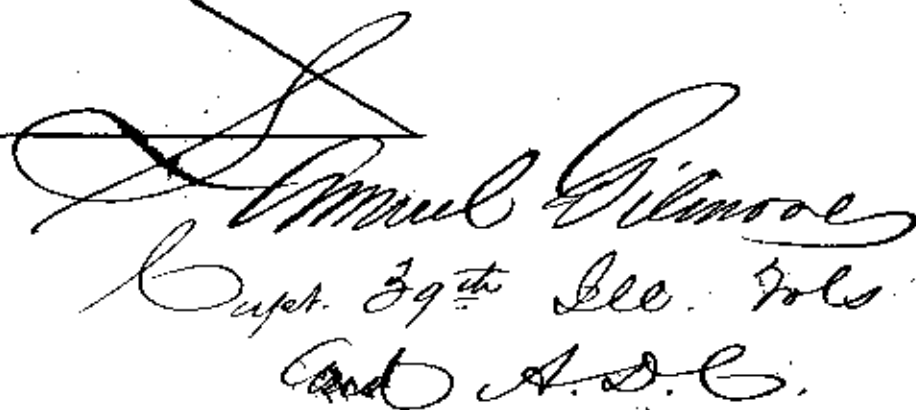 Samuel Gilmore
Capt. 39th Ill. Vols
and A.D.C.